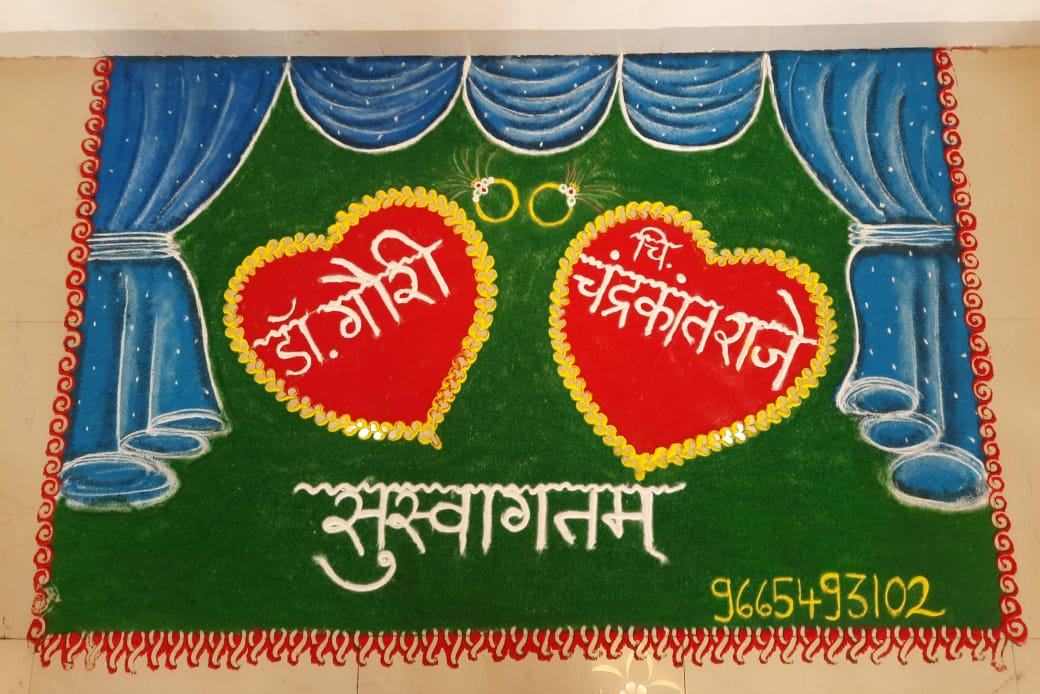 डॉ. गौरी
चि.
चंद्रकांत राजे
सुस्वागतम्
9665493102